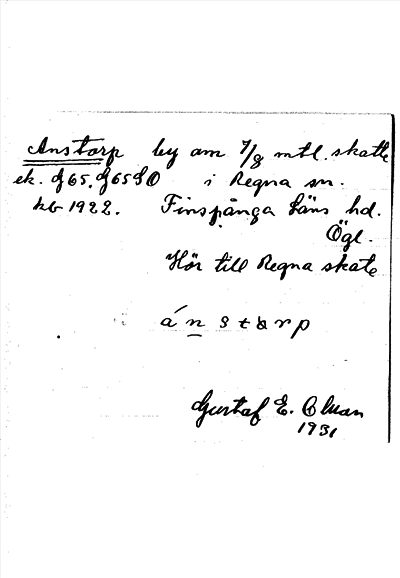 Anstorp by om 7/8 mtl. skatte
ek. J65. J65SO i Regna sn.
kb 1922. Finspånga läns hd.
Ögl.
Hör till Regna skate
á n s t ɑ r p
Gustaf E.
1931